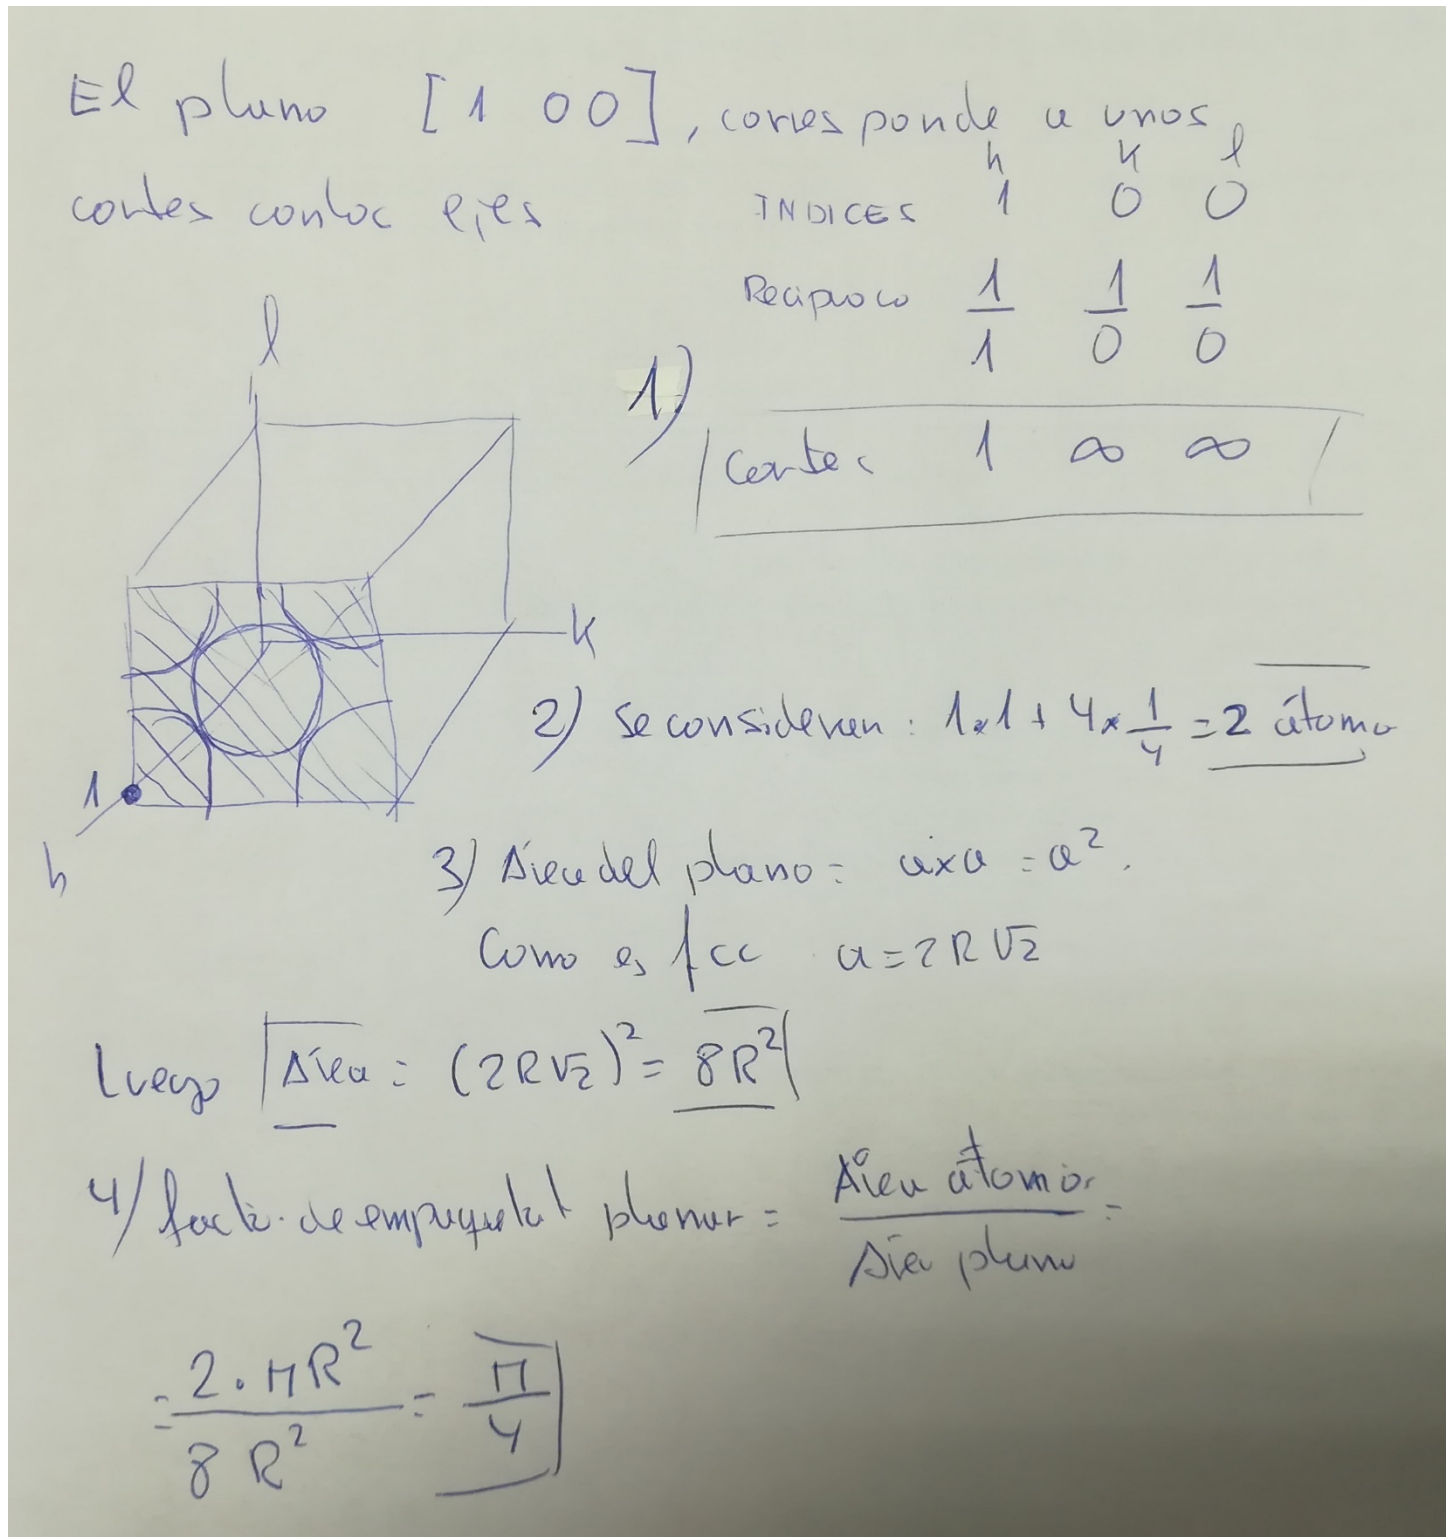 El plano [1 0 0], corresponde a unos
cortes con los ejes
h k l
INDICES 1 0 0
Reciproco 1/1 1/0 1/0
1)
Cortes 1 ∞ ∞
l
k
1
h
2) Se consideran: 1x1 + 4x1/4 = 2 átomos
3) Área del plano = axa = a².
Como es fcc a=2R√2
Luego Área = (2R√2)² = 8R²
4) factor de empaquetat planar = Área átomos / Área plano =
= 2·πR² / 8R² = π/4